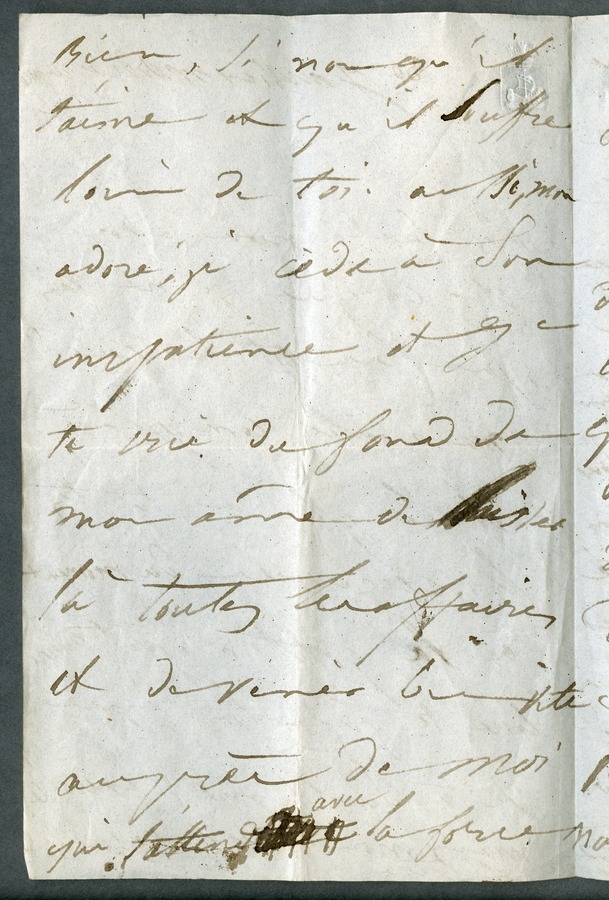 Bien, si non qu'il
t'aime et qu'il souffre
loin de toi. aussi, mon
adoré, je cède à son
impatience et je
te crie du fond de
mon âme de laisser
là toutes les affaires
et de venir bien vite
auprès de moi
qui t'attend avec la force